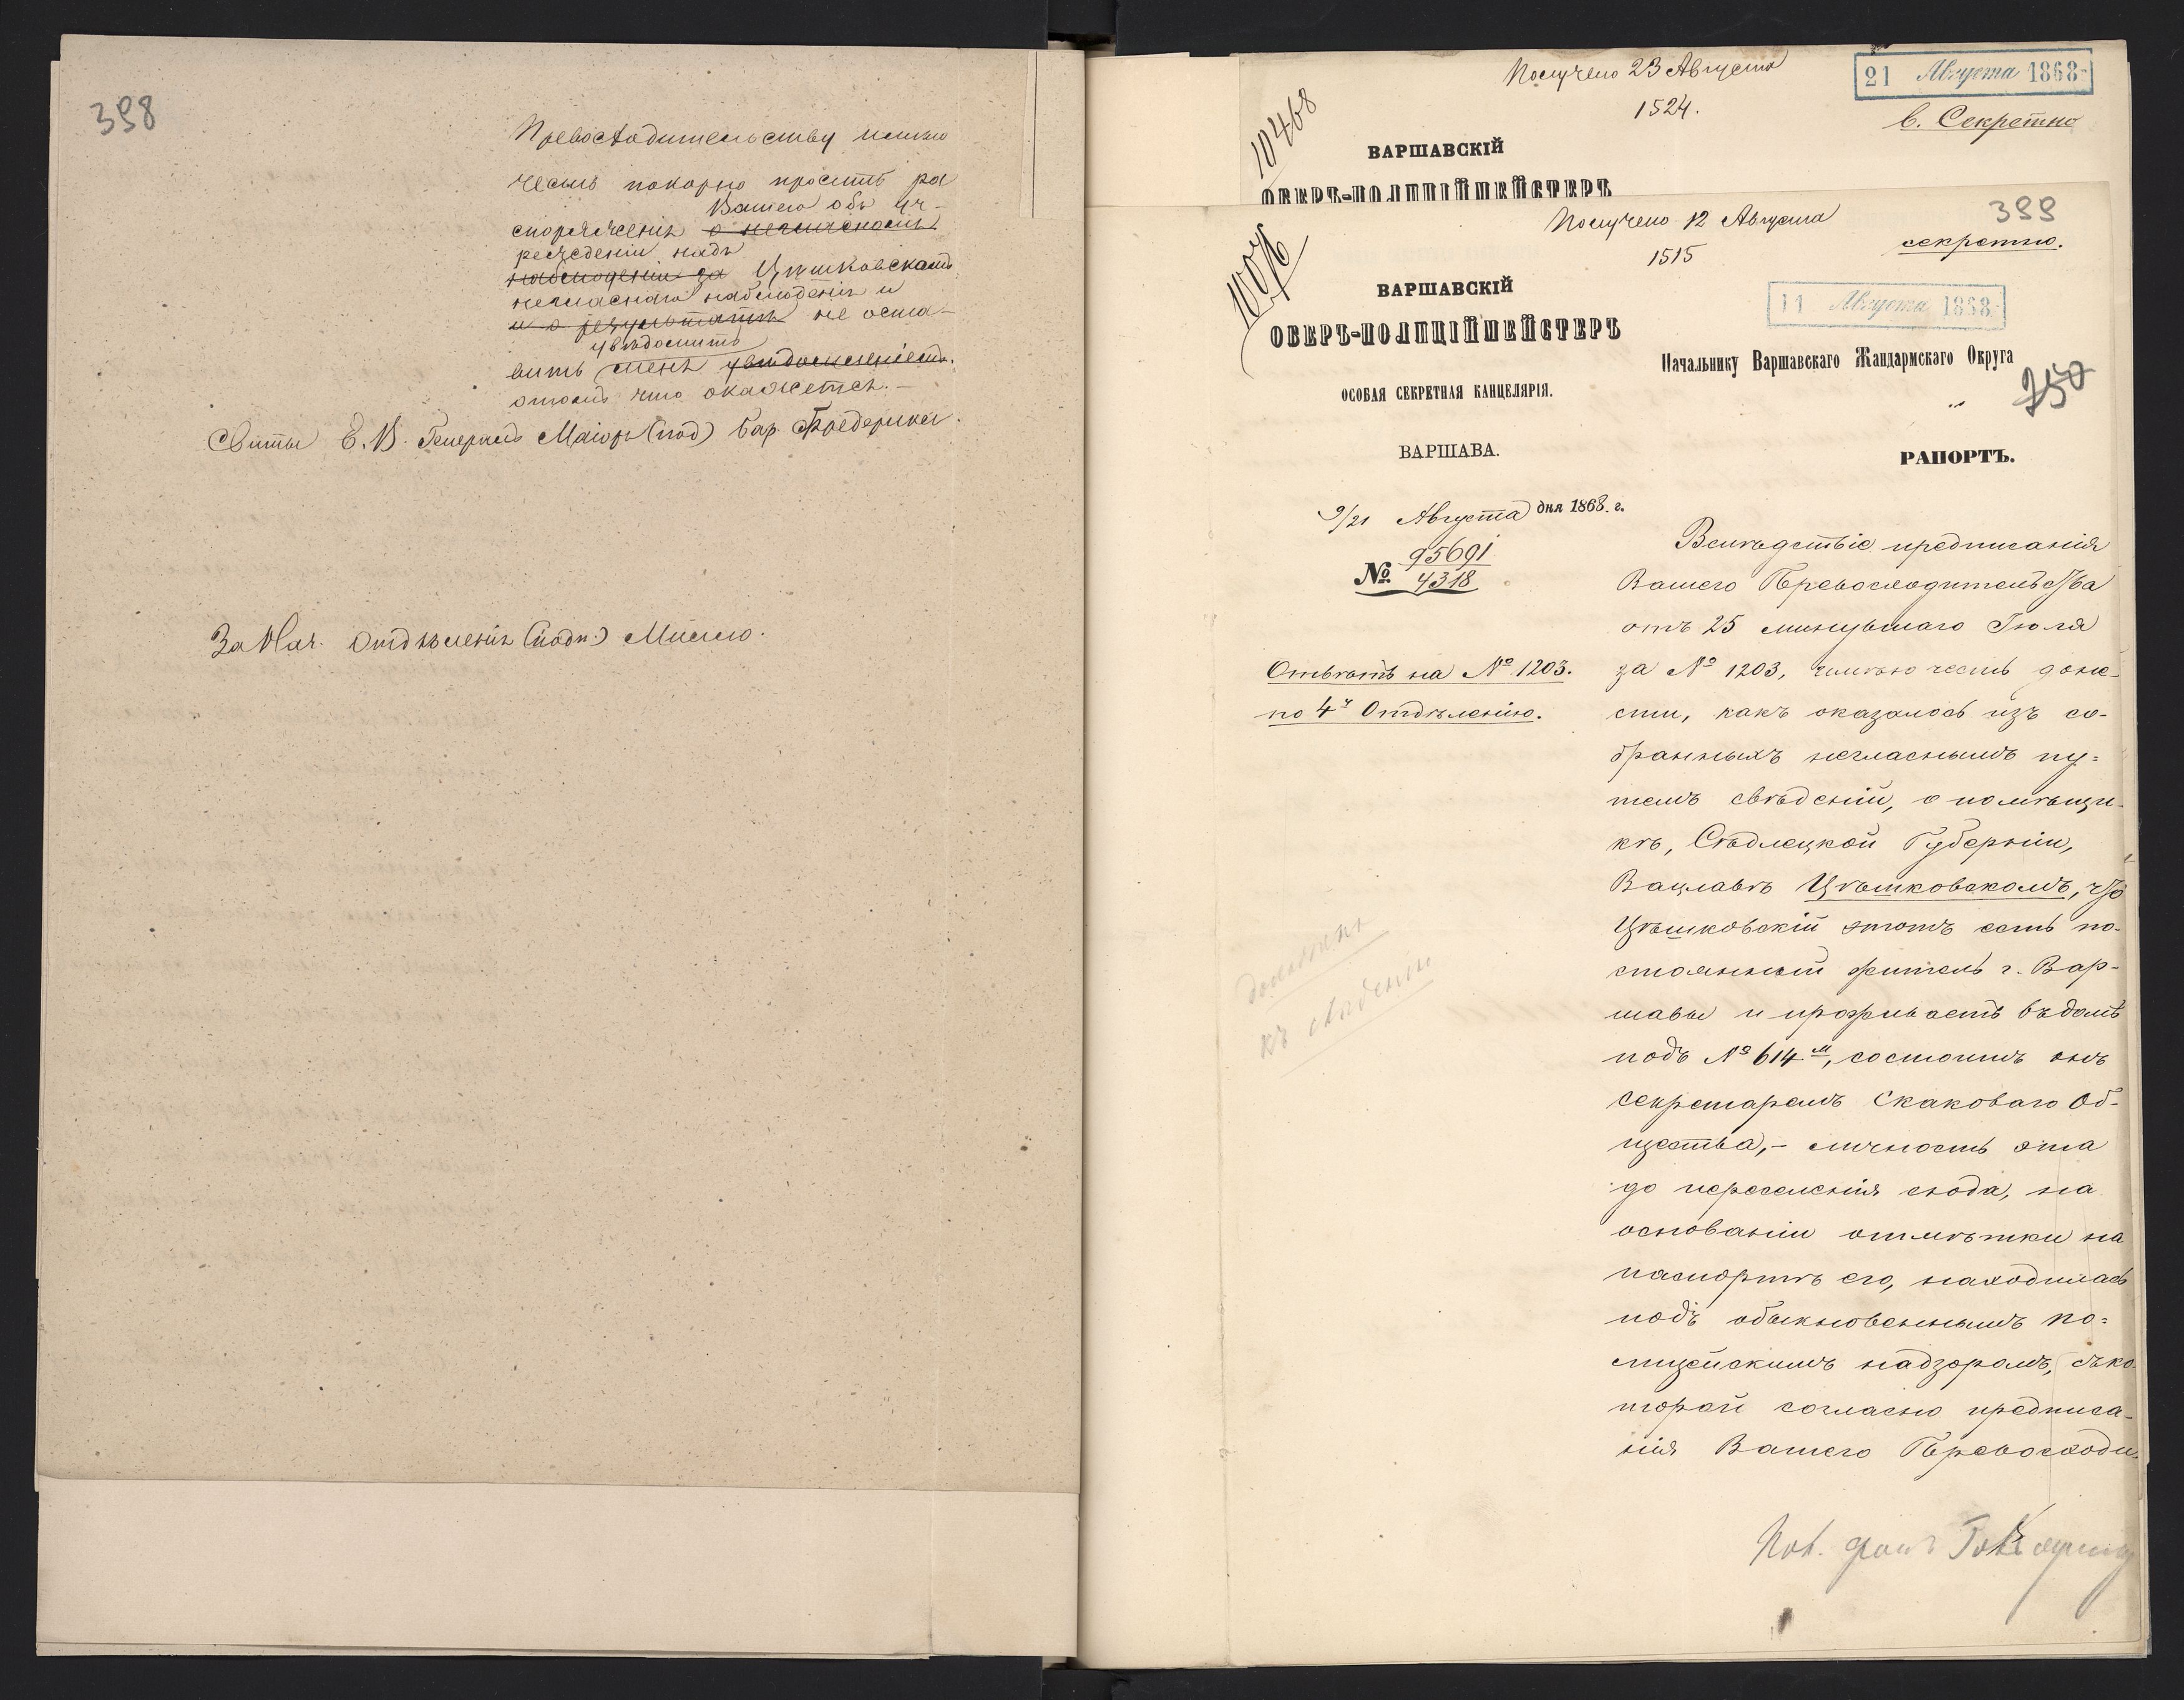 398
Превосходительству имѣю
честь покорно просить ра
Вашего объ уч-
споряженія о негласномъ
режденіи надъ
наблюденіи за Цѣшковскимъ
негласнаго наблюденія и
и о результатѣ не оста-
увѣдомить
вить меня увѣдомленіемъ.
о томъ что окажется.-
Свиты Е. В. Генералъ Маіоръ (под) бар. Фредериксъ.
За Нач. Отдѣленія (подп.)
Получено 23 Августа
1524.
21 Августа 1868
в. Секретно
10468
ВАРШАВСКІЙ
ОБЕРЪ-ПОЛИЦІЙМЕЙСТЕРЪ
399
Получено 12 Августа
1515
секретно.
11 Августа 1868
ВАРШАВСКІЙ
ОБЕРЪ-ПОЛИЦІЙМЕЙСТЕРЪ
ОСОБАЯ СЕКРЕТНАЯ КАНЦЕЛЯРІЯ.
ВАРШАВА.
9/21 Августа дня 1868. г.
№ 95691
4318
Отвѣтъ на № 1203.
по 4у Отдѣленію.
Начальнику Варшавскаго Жандармскаго Округа
РАПОРТЪ.
Вслѣдствіе предписанія
Вашего Превосходительства
отъ 25 минувшаго Іюля
за № 1203, имѣю честь доне-
сти, какъ оказалось изъ со-
бранныхъ негласнымъ пу-
темъ свѣдѣній, о помѣщи-
кѣ, Сѣдлецкой Губерніи,
Вацлавѣ Цѣшковскомъ, что
Цѣшковскій этотъ есть по-
стоянный житель г. Вар-
шавы и проживаетъ въ домѣ
подъ № 614 м, состоитъ онъ
секретаремъ Скаковаго Об-
щества,- личность эта
до переселенія сюда, на
основаніи отмѣтки на
паспортѣ его, находилась
подъ обыкновеннымъ по-
лицейскимъ надзоромъ, съ ко-
торой согласно предписа-
нія Вашего Превосходи-
къ свѣденію